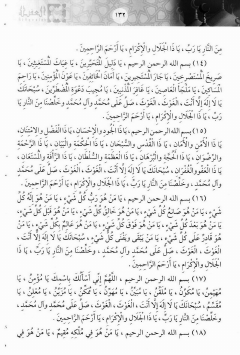 ١٣٤
مِنَ النَّارِ يَا رَبِّ، يَا ذَا الْجَلَالِ وَالْإِكْرَامِ، يَا أَرْحَمَ الرَّاحِمِينَ.
(١٤) بسم الله الرحمن الرحيم، يَا دَلِيلَ الْمُتَحَيِّرِينَ، يَا غِيَاثَ الْمُسْتَغِيثِينَ، يَا
صَرِيخَ الْمُسْتَصْرِخِينَ، يَا جَارَ الْمُسْتَجِيرِينَ، يَا أَمَانَ الْخَائِفِينَ، يَا عَوْنَ الْمُؤْمِنِينَ، يَا رَاحِمَ
الْمَسَاكِينِ، يَا مَلْجَأَ الْعَاصِينَ، يَا غَافِرَ الْمُذْنِبِينَ، يَا مُجِيبَ دَعْوَةِ الْمُضْطَرِّينَ، سُبْحَانَكَ
يَا لَا إِلٰهَ إِلَّا أَنْتَ، الْغَوْثَ، الْغَوْثَ، صَلِّ عَلَى مُحَمَّدٍ وَآلِ مُحَمَّدٍ، وَخَلِّصْنَا مِنَ النَّارِ يَا
رَبِّ، يَا ذَا الْجَلَالِ وَالْإِكْرَامِ، يَا أَرْحَمَ الرَّاحِمِينَ.
(١٥) بسم الله الرحمن الرحيم، يَا ذَا الْجُودِ وَالْإِحْسَانِ، يَا ذَا الْفَضْلِ وَالْاِمْتِنَانِ،
يَا ذَا الْأَمْنِ وَالْأَمَانِ، يَا ذَا الْقُدْسِ وَالسُّبْحَانِ، يَا ذَا الْحِكْمَةِ وَالْبَيَانِ، يَا ذَا الرَّحْمَةِ
وَالرِّضْوَانِ، يَا ذَا الْحُجَّةِ وَالْبُرْهَانِ، يَا ذَا الْعَظَمَةِ وَالسُّلْطَانِ، يَا ذَا الرَّأْفَةِ وَالْمُسْتَعَانِ،
يَا ذَا الْعَفْوِ وَالْغُفْرَانِ، سُبْحَانَكَ يَا لَا إِلٰهَ إِلَّا أَنْتَ، الْغَوْثَ، الْغَوْثَ، صَلِّ عَلَى مُحَمَّدٍ
وَآلِ مُحَمَّدٍ، وَخَلِّصْنَا مِنَ النَّارِ يَا رَبِّ، يَا ذَا الْجَلَالِ وَالْإِكْرَامِ، يَا أَرْحَمَ الرَّاحِمِينَ.
(١٦) بسم الله الرحمن الرحيم، يَا مَنْ هُوَ رَبُّ كُلِّ شَيْءٍ، يَا مَنْ هُوَ إِلٰهُ كُلِّ
شَيْءٍ، يَا مَنْ هُوَ صَانِعُ كُلِّ شَيْءٍ، يَا مَنْ هُوَ خَالِقُ كُلِّ شَيْءٍ، يَا مَنْ هُوَ قَبْلَ كُلِّ شَيْءٍ،
يَا مَنْ هُوَ بَعْدَ كُلِّ شَيْءٍ، يَا مَنْ هُوَ فَوْقَ كُلِّ شَيْءٍ، يَا مَنْ هُوَ عَالِمٌ بِكُلِّ شَيْءٍ، يَا مَنْ
هُوَ قَادِرٌ عَلَى كُلِّ شَيْءٍ، يَا مَنْ يَبْقَى وَيَفْنَى كُلُّ شَيْءٍ، سُبْحَانَكَ يَا لَا إِلٰهَ إِلَّا أَنْتَ،
الْغَوْثَ، الْغَوْثَ، صَلِّ عَلَى مُحَمَّدٍ وَآلِ مُحَمَّدٍ، وَخَلِّصْنَا مِنَ النَّارِ يَا رَبِّ، يَا ذَا
الْجَلَالِ وَالْإِكْرَامِ، يَا أَرْحَمَ الرَّاحِمِينَ.
(١٧) بسم الله الرحمن الرحيم، اَللّٰهُمَّ إِنِّي أَسْأَلُكَ بِاسْمِكَ يَا مُؤْمِنُ، يَا
مُهَيْمِنُ، يَا مُكَوِّنُ، يَا مُلَقِّنُ، يَا مُبَيِّنُ، يَا مُهَوِّنُ، يَا مُمَكِّنُ، يَا مُزَيِّنُ، يَا مُعْلِنُ، يَا
مُقَسِّمُ، سُبْحَانَكَ يَا لَا إِلٰهَ إِلَّا أَنْتَ، الْغَوْثَ، الْغَوْثَ، صَلِّ عَلَى مُحَمَّدٍ وَآلِ مُحَمَّدٍ،
وَخَلِّصْنَا مِنَ النَّارِ يَا رَبِّ، يَا ذَا الْجَلَالِ وَالْإِكْرَامِ، يَا أَرْحَمَ الرَّاحِمِينَ.
(١٨) بسم الله الرحمن الرحيم، يَا مَنْ هُوَ فِي مُلْكِهِ مُقِيمٌ، يَا مَنْ هُوَ فِي